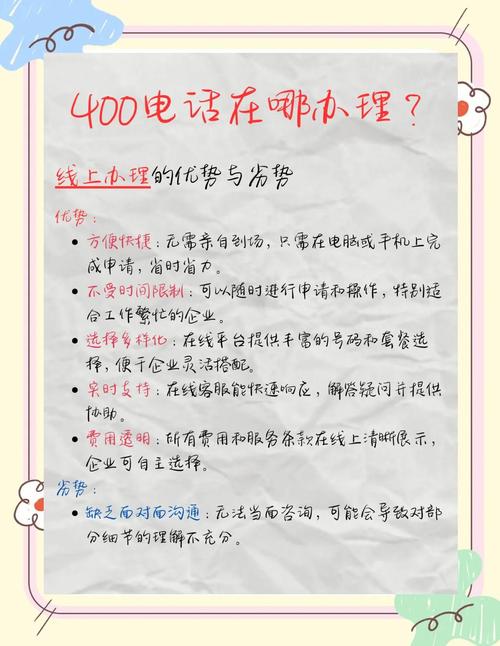 400电话在哪办理？
线上办理的优势与劣势
优势：
• 方便快捷：无需亲自到场，只需在电脑或手机上完
成申请，省时省力。
• 不受时间限制：可以随时进行申请和操作，特别适
合工作繁忙的企业。
• 选择多样化：在线平台提供丰富的号码和套餐选
择，便于企业灵活搭配。
• 实时支持：在线客服能快速响应，解答疑问并提供
协助。
• 费用透明：所有费用和服务条款在线上清晰展示，
企业可自主选择。
劣势：
• 缺乏面对面沟通：无法当面咨询，可能会导致对部
分细节的理解不充分。